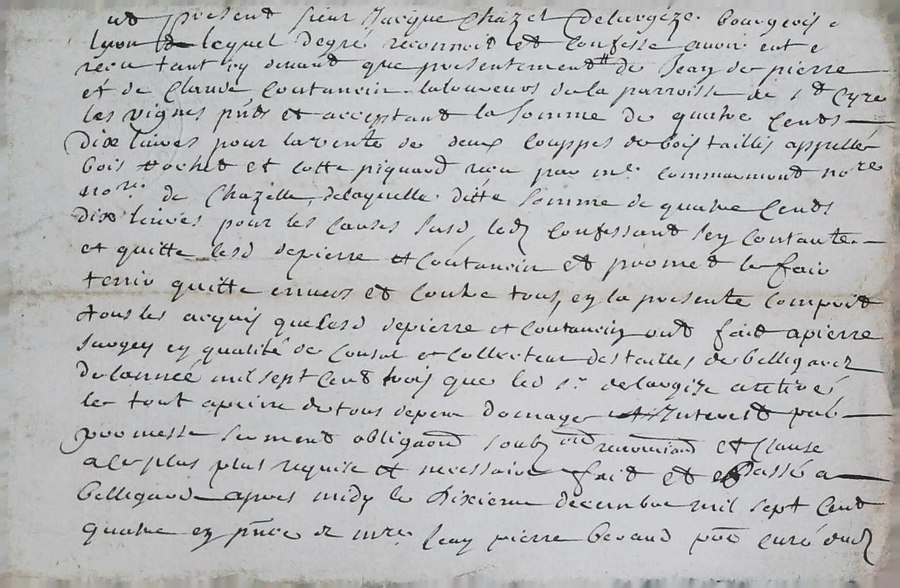 ut present sieur Jacque Chazel delargeze bourgeois
lyon lequel degré reconnoit et confesse avoir eut e
receu tant cy devant que presentement de Jean de pierre
et de Claude Coutancin laboureurs de la parroisse de st Cyre
les vignes pnts et acceptant la somme de quatre Cents
dix livres pour la vente de deux Couppes de bois taillis appellé
bois et Cotte piquard receu par me. nore
nore. de Chazelle delaquelle ditte somme de quatre Cents
dix livres pour les Causes susd led Confessant sen Contante
et quitte lesd depierre et Coutancin et promet le faire
tenir quitte envers et Contre tous, en la presente Comprit
tous les acquis que lesd depierre et Coutancin ont fait a pierre
en qualité de Consul et Collecteur destailles de bellegarde
delannée mil sept Cent trois que led sr. delargeze a retiré
le tout a peine de tous depens domages et Interest par
promesse serment obligaond soubz renonciaond et Clause
a le plus plus requise et necessaire fait et et Passé a
bellegarde apres midy le dixieme decembre mil sept Cent
quatre en pnce de mre. Jean pierre beraud ptre curé dud